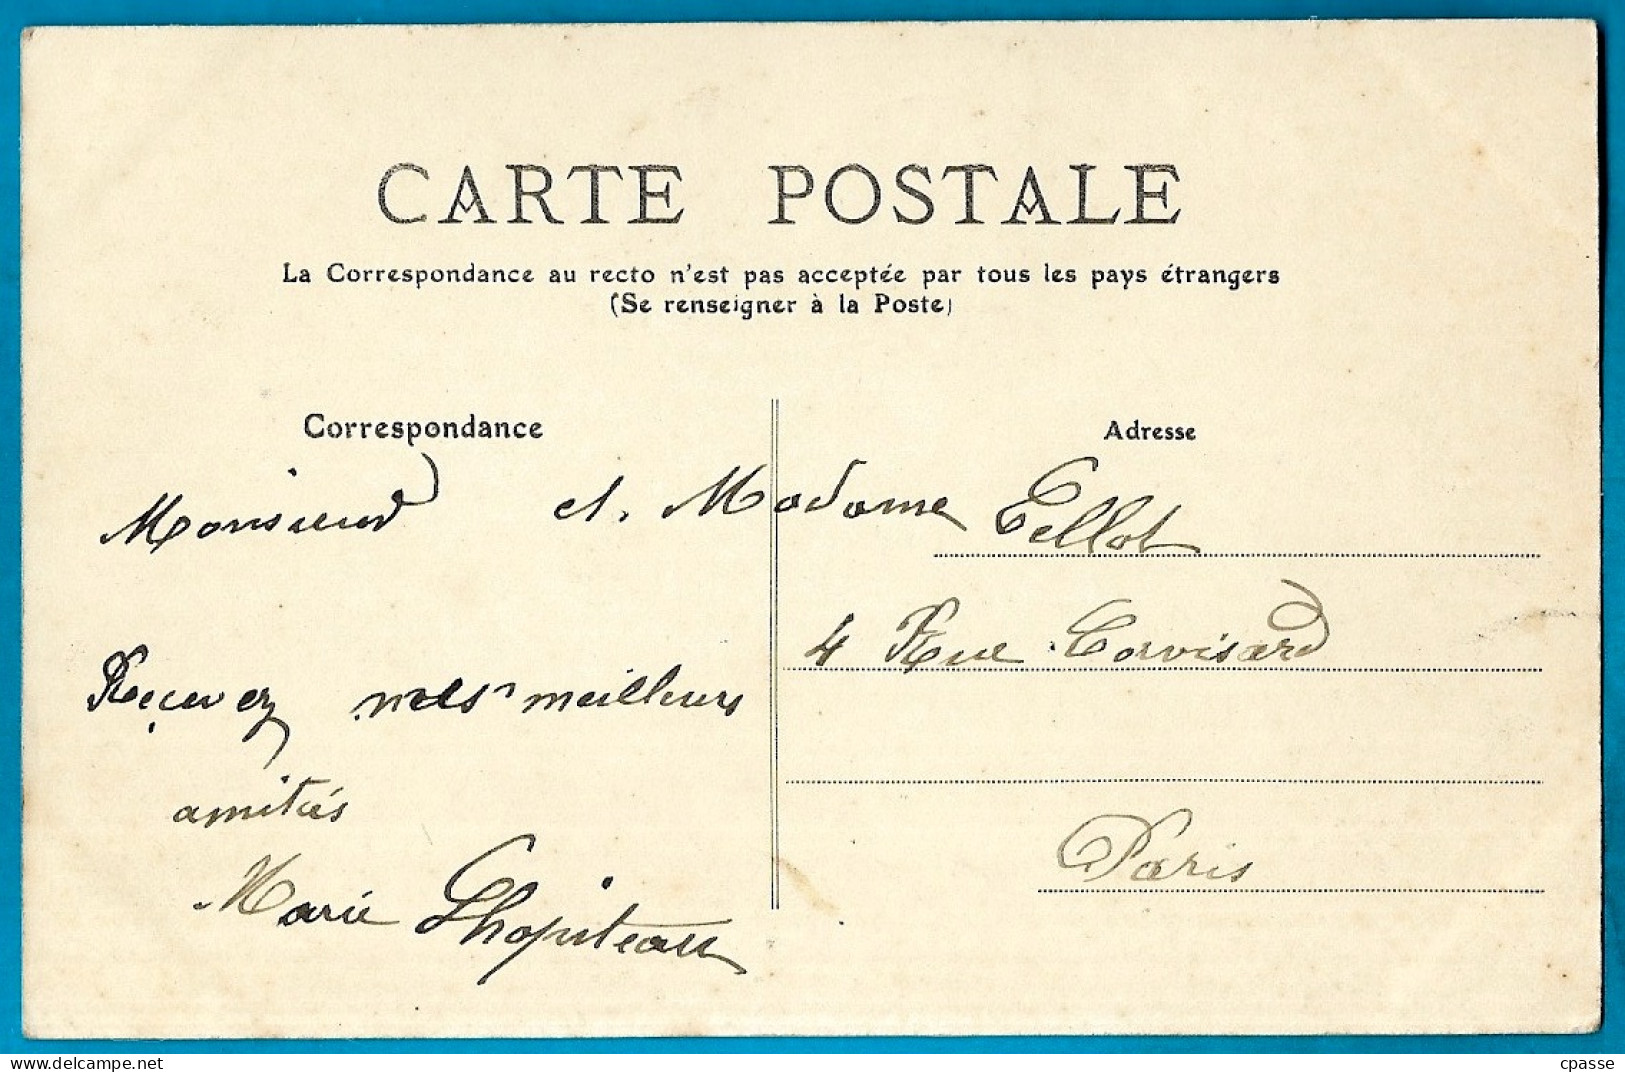 CARTE POSTALE
La Correspondance au recto n'est pas acceptée par tous les pays étrangers
(Se renseigner à la Poste)
Correspondance
Adresse
Monsieur et Madame Tellot
4 Rue Corvisard
Paris
Recevez mes meilleurs
amitiés
Marie Lhopiteau
delcampe.net
cpasse